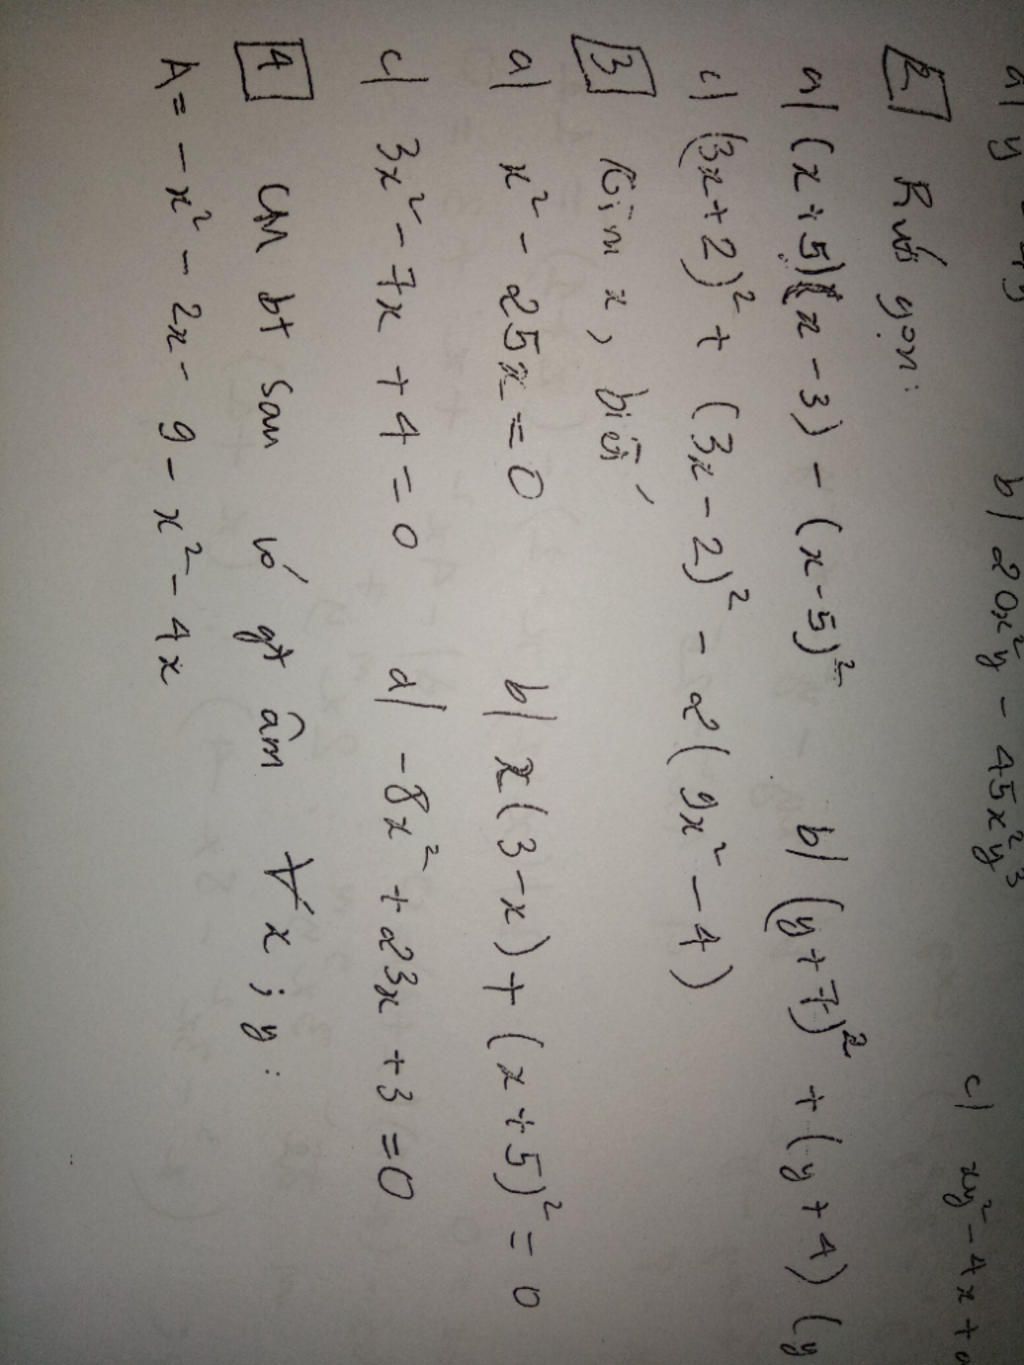 b) 20x²y - 45x²y³ c) xy² - 4x +
2 Rút gọn:
a) (x+5)(x-3) - (x-5)² b) (y+7)² + (y+4)(y
c) (3x+2)² + (3x-2)² - 2(9x²-4)
3 Tìm x, biết
a) x² - 25x = 0 b) x(3-x) + (x+5)² = 0
c) 3x² - 7x + 4 = 0 d) -8x² + 23x + 3 = 0
4 CM bt sau có gt âm ∀x; y:
A = -x² - 2x - 9 - x² - 4x